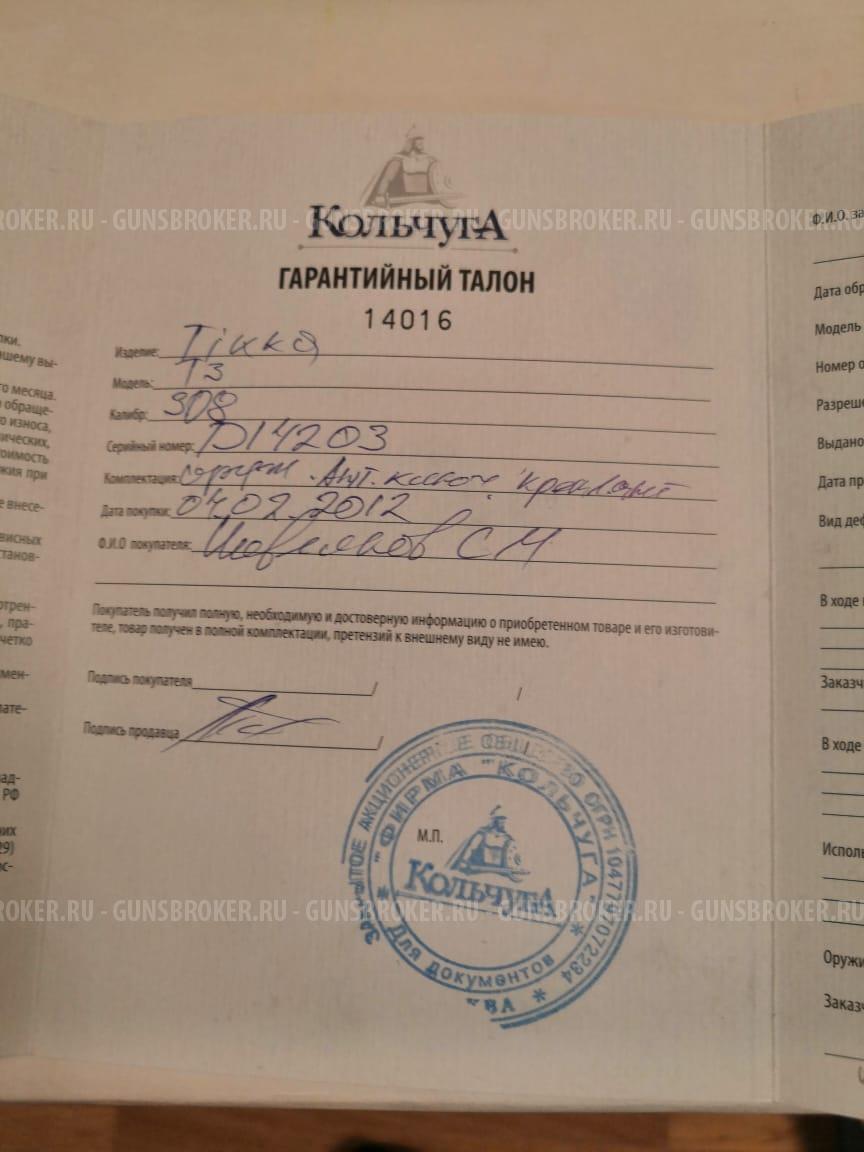 КольчугА
ГАРАНТИЙНЫЙ ТАЛОН
14016
Изделие: Tikka
Модель: T3
Калибр: 308
Серийный номер: D14203
Комплектация:
Дата покупки: 04.02.2012
Ф.И.О покупателя: С М
Покупатель получил полную, необходимую и достоверную информацию о приобретенном товаре и его изготови-
теле, товар получен в полной комплектации, претензий к внешнему виду не имею.
Подпись покупателя / /
Подпись продавца /
М.П.
АКЦИОНЕРНОЕ ОБЩЕСТВО ОГРН
* "ФИРМА "КОЛЬЧУГА" *
КольчугА
Для документов
ки.
шему вы-
го месяца.
обраще-
о износа,
ических,
оимость
жия при
е внесе-
висных
станов-
отрен-
, пра-
четко
мен-
ате-
ад-
РФ
них
29)
ос-
Ф.И.О. за
Дата обр
Модель
Номер о
Разреше
Выдано
Дата пр
Вид деф
В ходе
Заказч
В ходе
Исполь
Оружи
Заказч
OKER.RU - GUNSBROKER.RU - GUNSBROKER.RU - GUNSBROKER.RU - GUNSBROKER
OKER.RU - GUNSBROKER.RU - GUNSBROKER.RU - GUNSBROKER.RU - GUNSBROKER